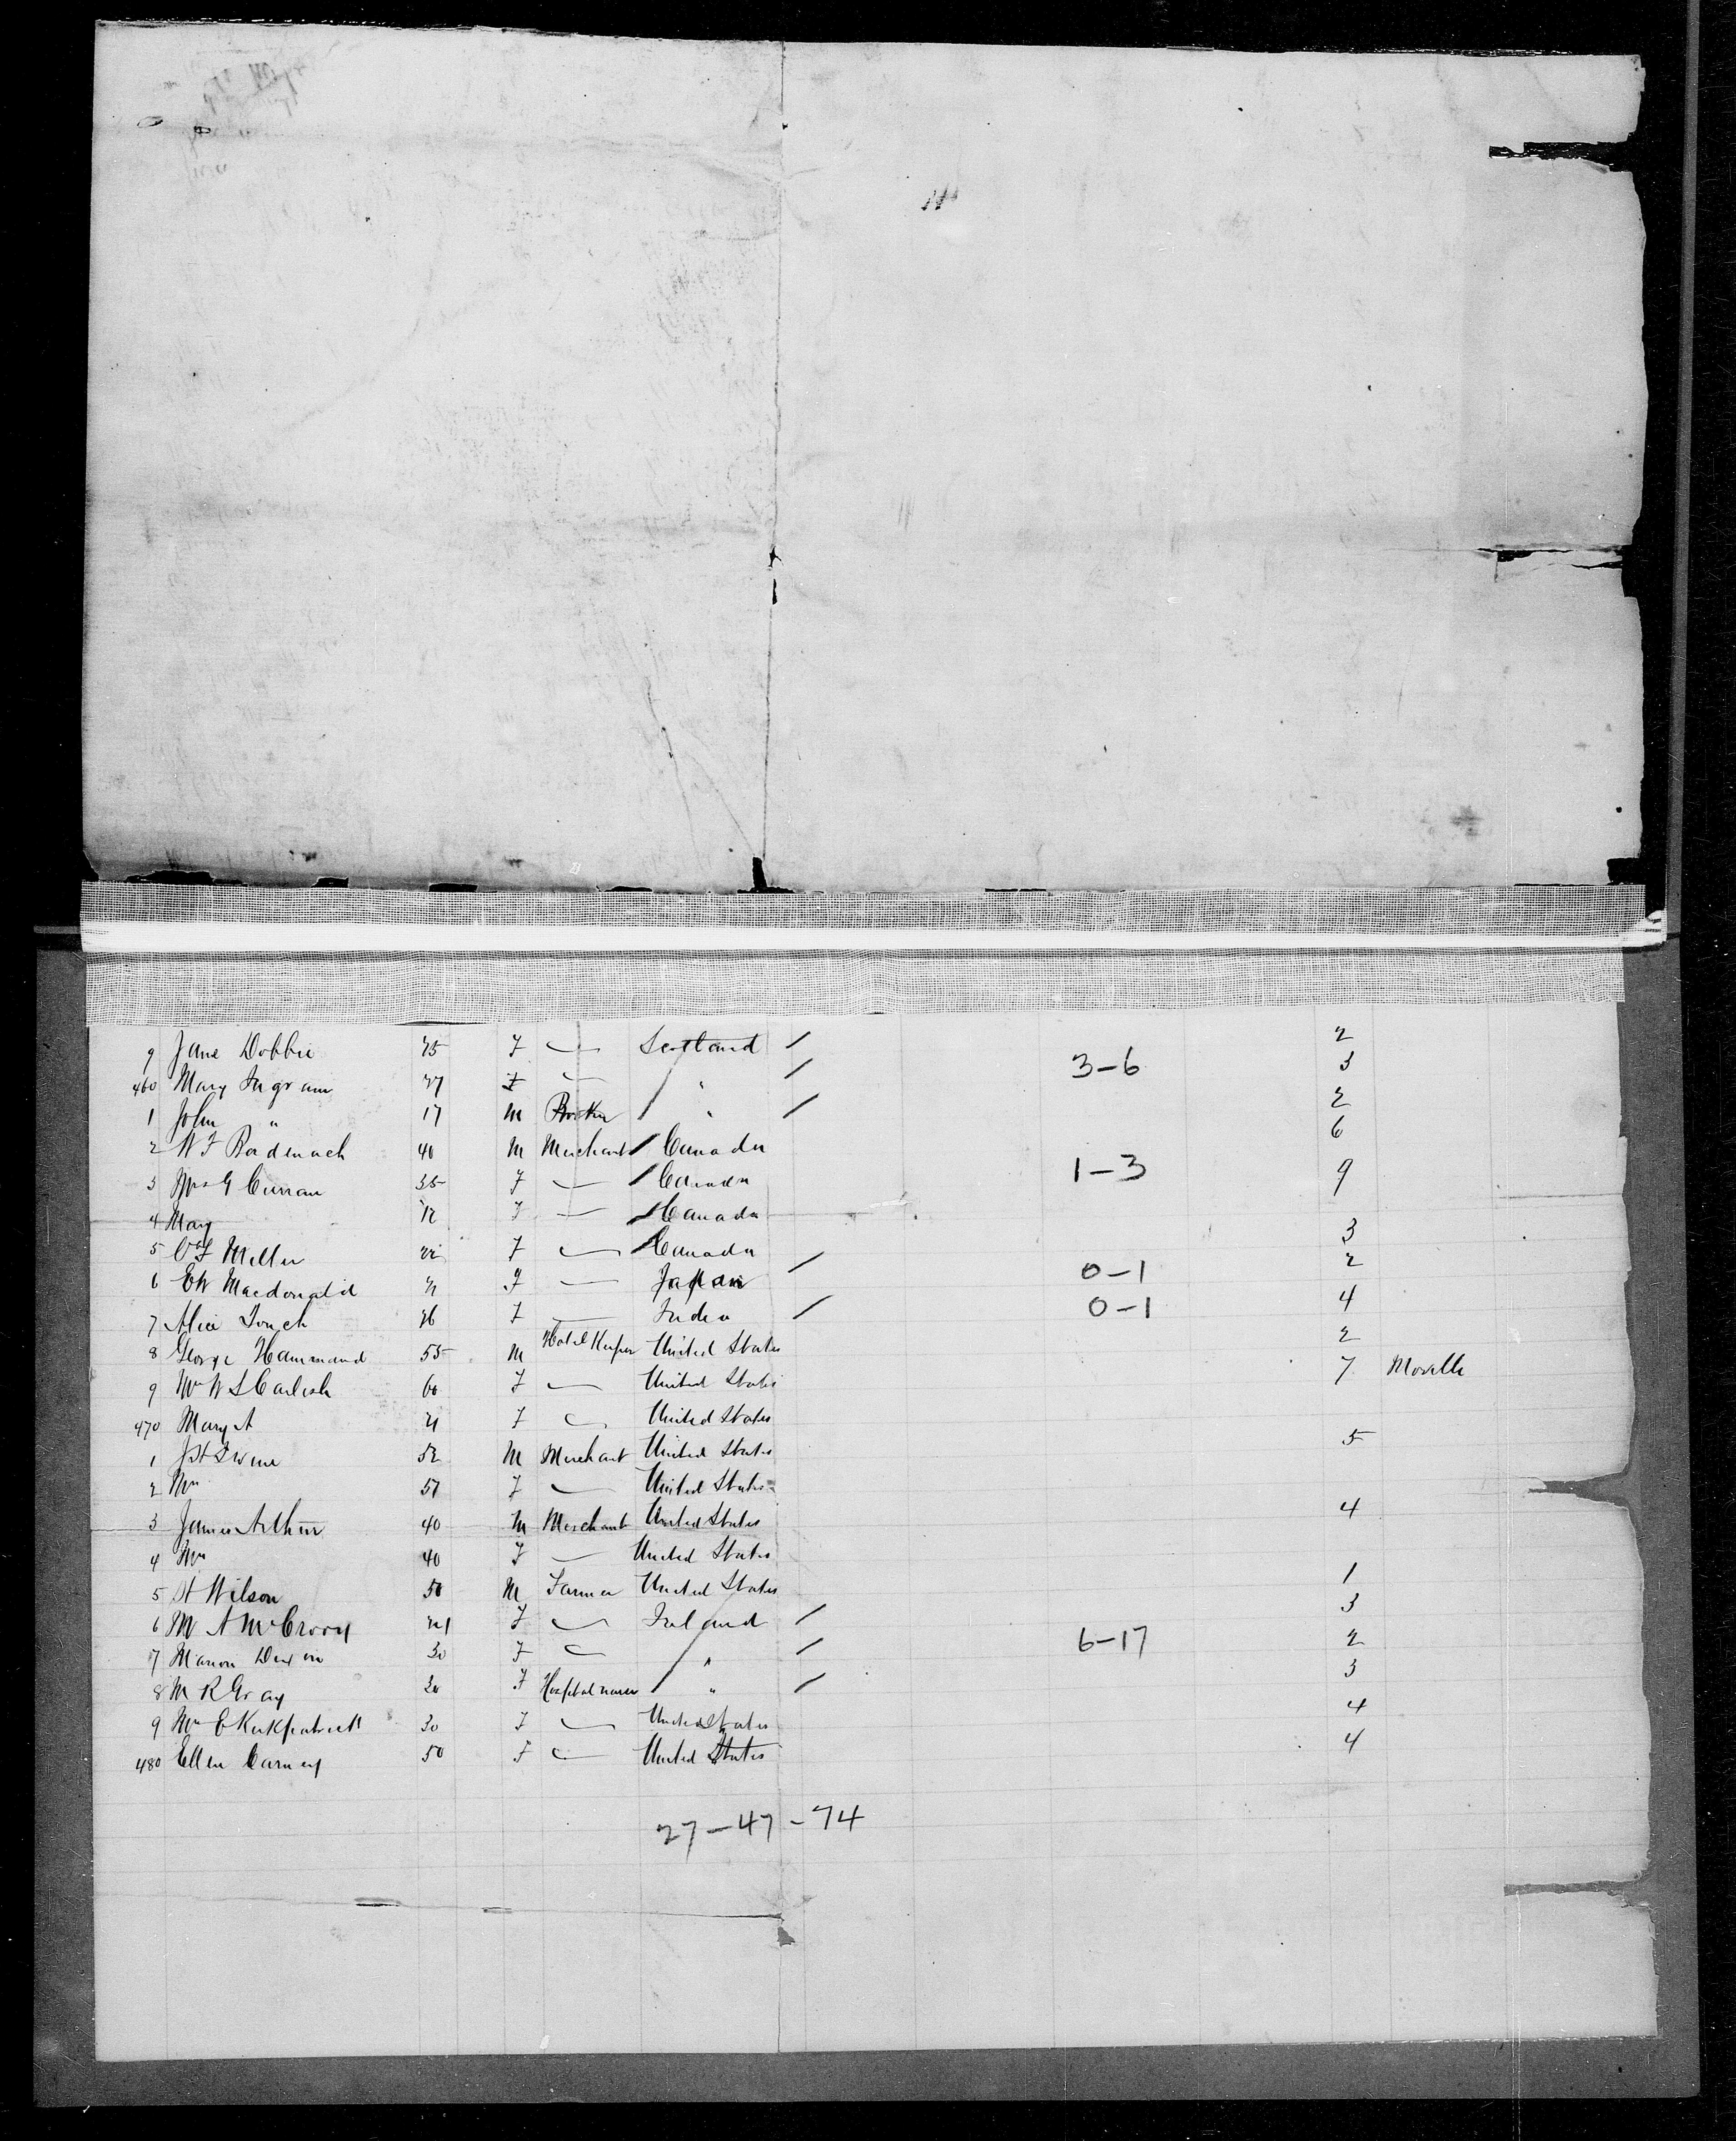 9 Jane Dobbie F — Scotland / 2
460 Mary Ingram F — " / 3-6 3
1 John " 17 M " / 2
2 W F Badenach 40 M Merchant / Canada 6
3 Mrs G Curran 35 F — / Canada 1-3 9
4 Mary F — / Canada
5 Miller F — / Canada 3
6 EW Macdonald F — Japan / 0-1 2
7 Alice F — India / 0-1 4
8 George Hammand 55 M Hotel Keeper United States 2
9 Mrs W S 60 F — United States 7 Moville
470 Mary A F — United States
1 52 M Merchant United States 5
2 Mrs F — United States
3 James Arthur 40 M Merchant United States 4
4 Mrs 40 F — United States
5 H Wilson 50 M Farmer United States 1
6 M A McCrory F — Ireland / 3
7 Marion 30 F — " / 6-17 2
8 M R Gray F Hospital nurse " / 3
9 Mrs E Kirkpatrick 30 F — United States 4
480 Ellen Carney 50 F — United States 4
27-47-74